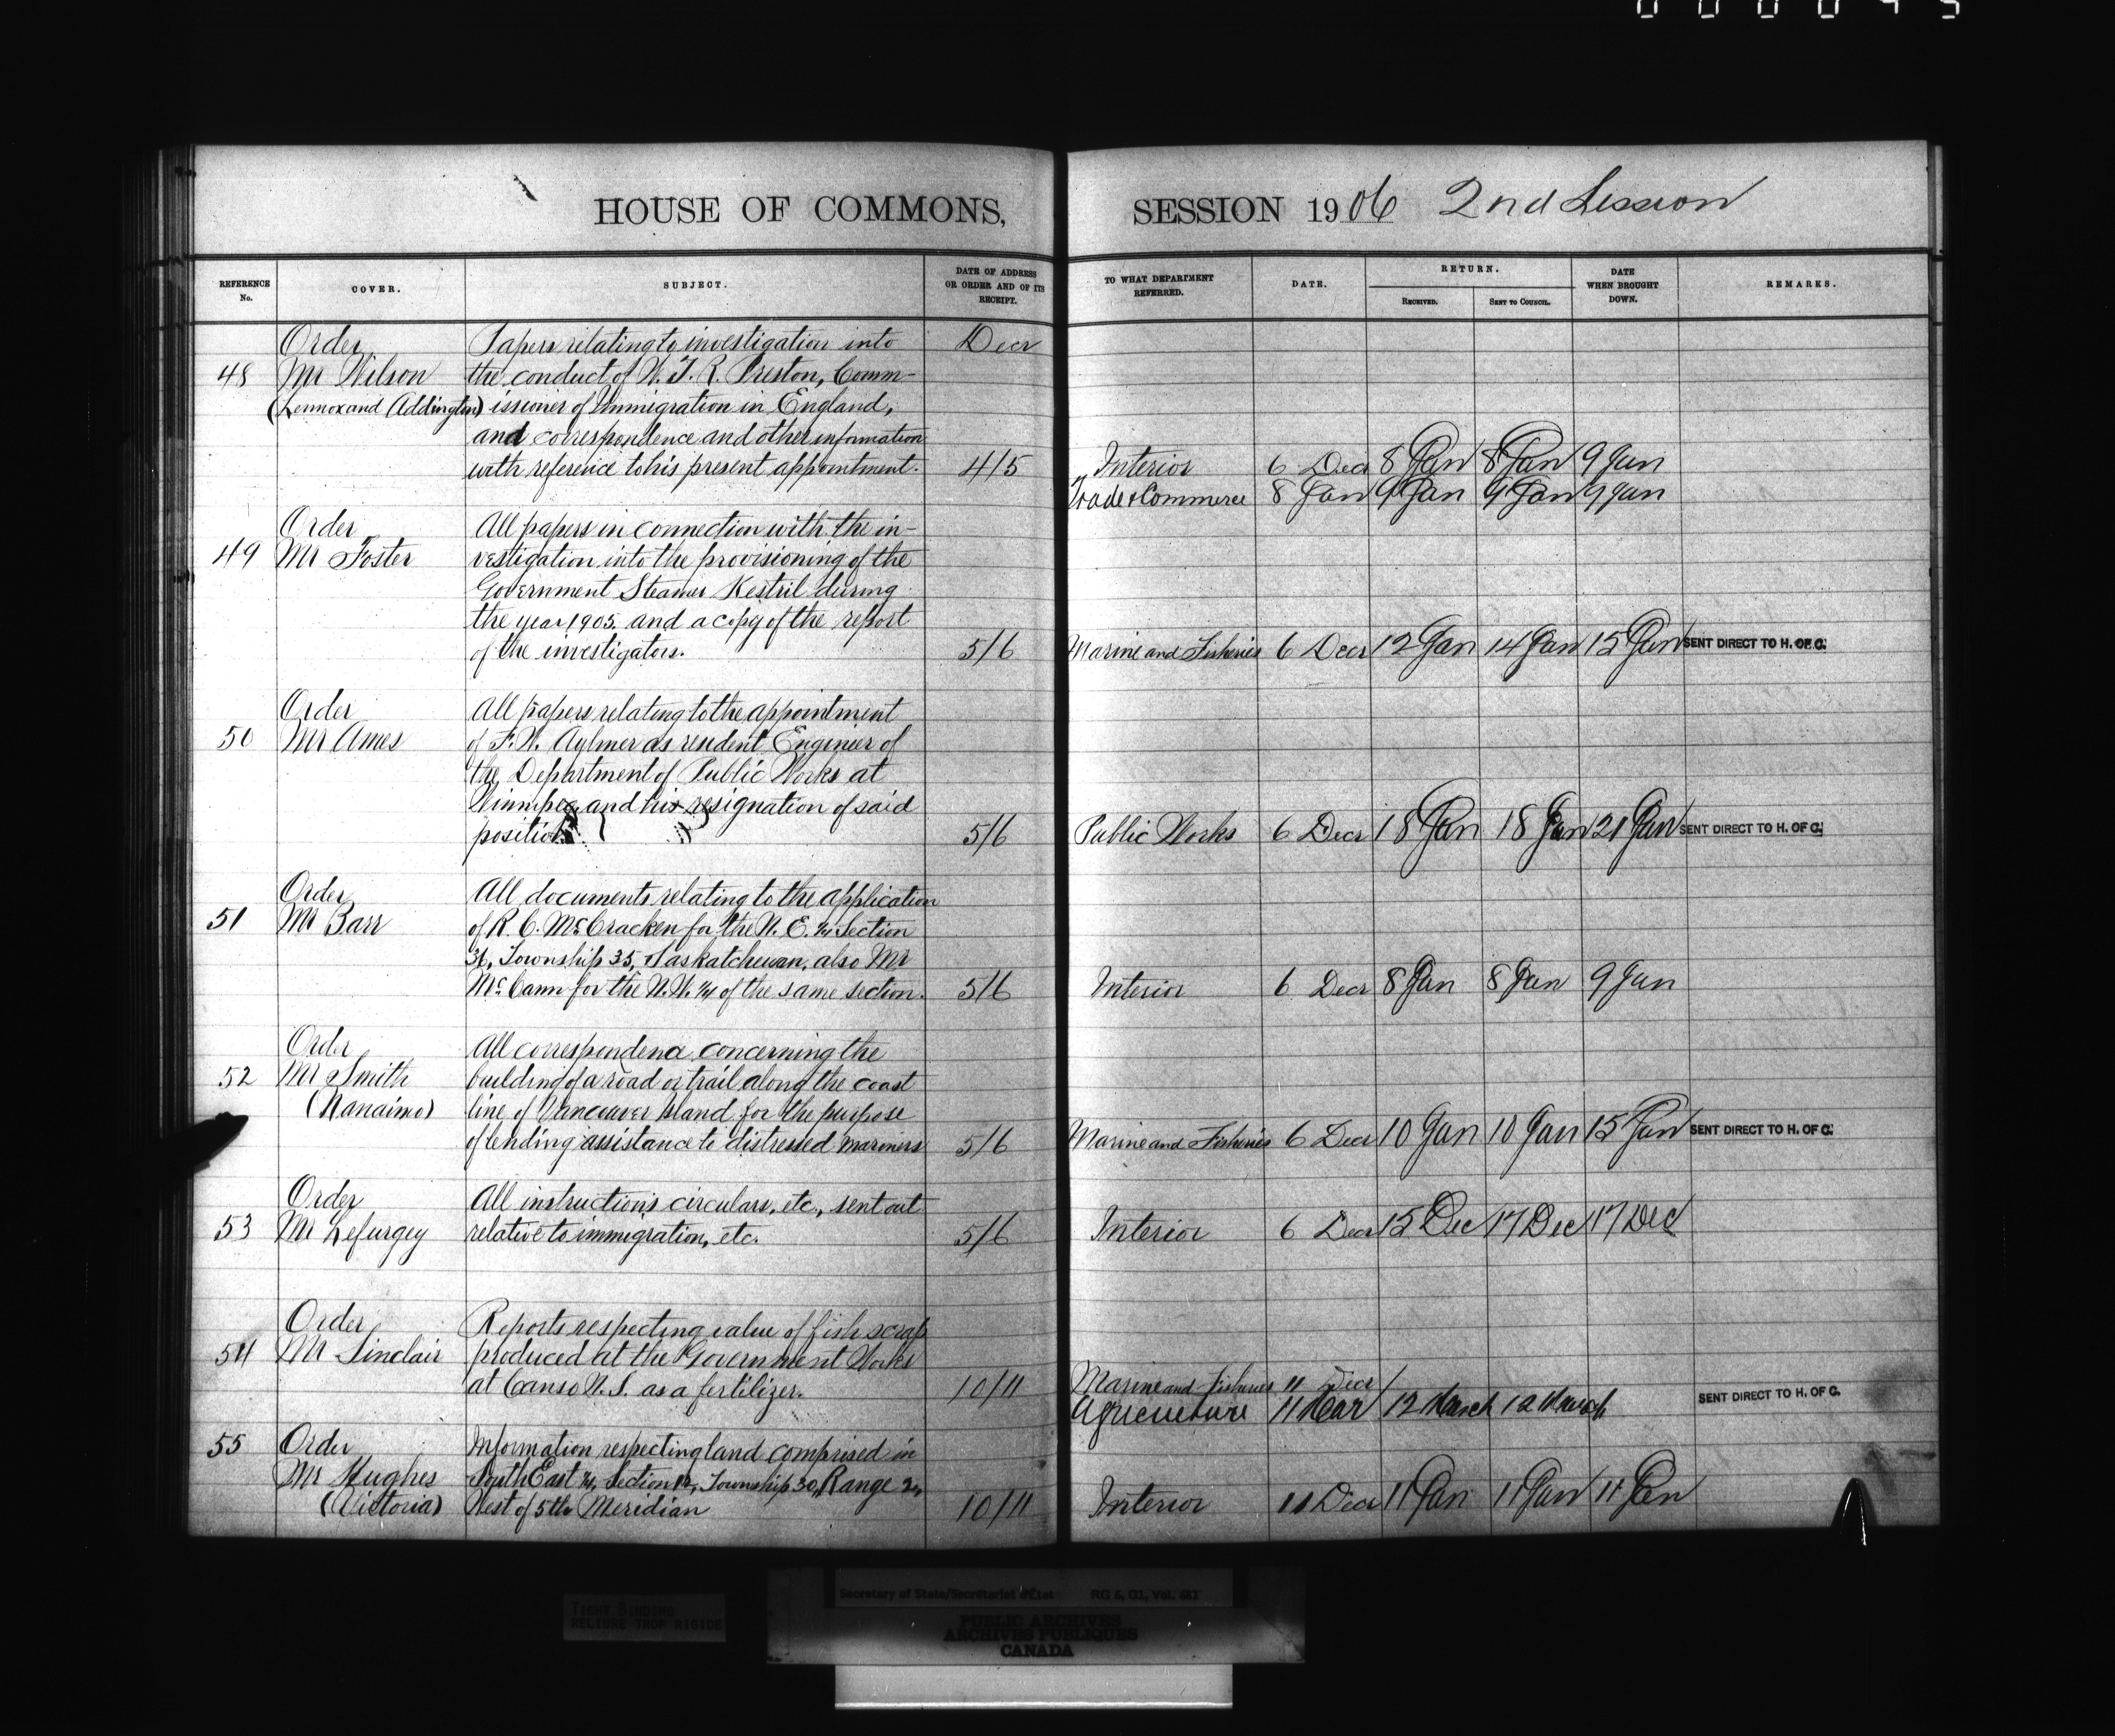 HOUSE OF COMMONS,
REFERENCE No. COVER. SUBJECT. DATE OF ADDRESS OR ORDER AND OF ITS RECEIPT.
Order Papers relating to investigation into Decr
48 Mr Wilson the conduct of W. T. R. Preston, Comm-
(Lennox and Addington) issioner of Immigration in England,
and correspondence and other information
with reference to his present appointment. 4/5
Order All papers in connection with the in-
49 Mr Foster vestigation into the provisioning of the
Government Steamer Kestril during
the year 1905. and a copy of the report
of the investigators. 5/6
Order All papers relating to the appointment
50 Mr Ames of F. W. Aylmer as resident Engineer of
the Department of Public Works at
Winnipeg and his resignation of said
position. 5/6
Order All documents relating to the application
51 Mr Barr of R. C. McCracken for the N. E. 1/4 Section
Township 35, Saskatchewan, also Mr
McCann for the N.W. 1/4 of the same section. 5/6
Order All correspondence concerning the
52 Mr Smith building of a road or trail along the coast
(Nanaimo) line of Vancouver Island for the purpose
of lending assistance to distressed mariners 5/6
Order All instructions circulars, etc., sent out
53 Mr Lefurgey relative to immigration, etc. 5/6
Order Reports respecting value of fish scrap
54 Mr Sinclair produced at the Government Works
at Canso N. S. as a fertilizer. 10/11
55 Order Information respecting land comprised in
Mr Hughes South East 1/4, Section Township 30, Range 2,
(Victoria) West of 5th Meridian 10/11
SESSION 1906 2nd Session
TO WHAT DEPARTMENT REFERRED. DATE. RETURN. RECEIVED. SENT TO COUNCIL. DATE WHEN BROUGHT DOWN. REMARKS.
Interior 6 Decr 8 Jan 8 Jan 9 Jan
Trade & Commerce 8 Jan 9 Jan 9 Jan 9 Jan
Marine and Fisheries 6 Decr 12 Jan 14 Jan 15 Jan SENT DIRECT TO H. OF C.
Public Works 6 Decr 18 Jan 18 Jan 21 Jan SENT DIRECT TO H. OF C.
Interior 6 Decr 8 Jan 8 Jan 9 Jan
Marine and Fisheries 6 Decr 10 Jan 10 Jan 15 Jan SENT DIRECT TO H. OF C.
Interior 6 Decr 15 Dec 17 Dec 17 Dec
Marine and Fisheries 11 Decr
Agriculture 11 Mar 12 March 12 March SENT DIRECT TO H. OF C.
Interior 11 Decr 11 Jan 11 Jan 11 Jan
TIGHT BINDING
RELIURE TROP RIGIDE
Secretary of State/Secrétariat d'État RG 6, G1, Vol. 681
PUBLIC ARCHIVES
ARCHIVES PUBLIQUES
CANADA